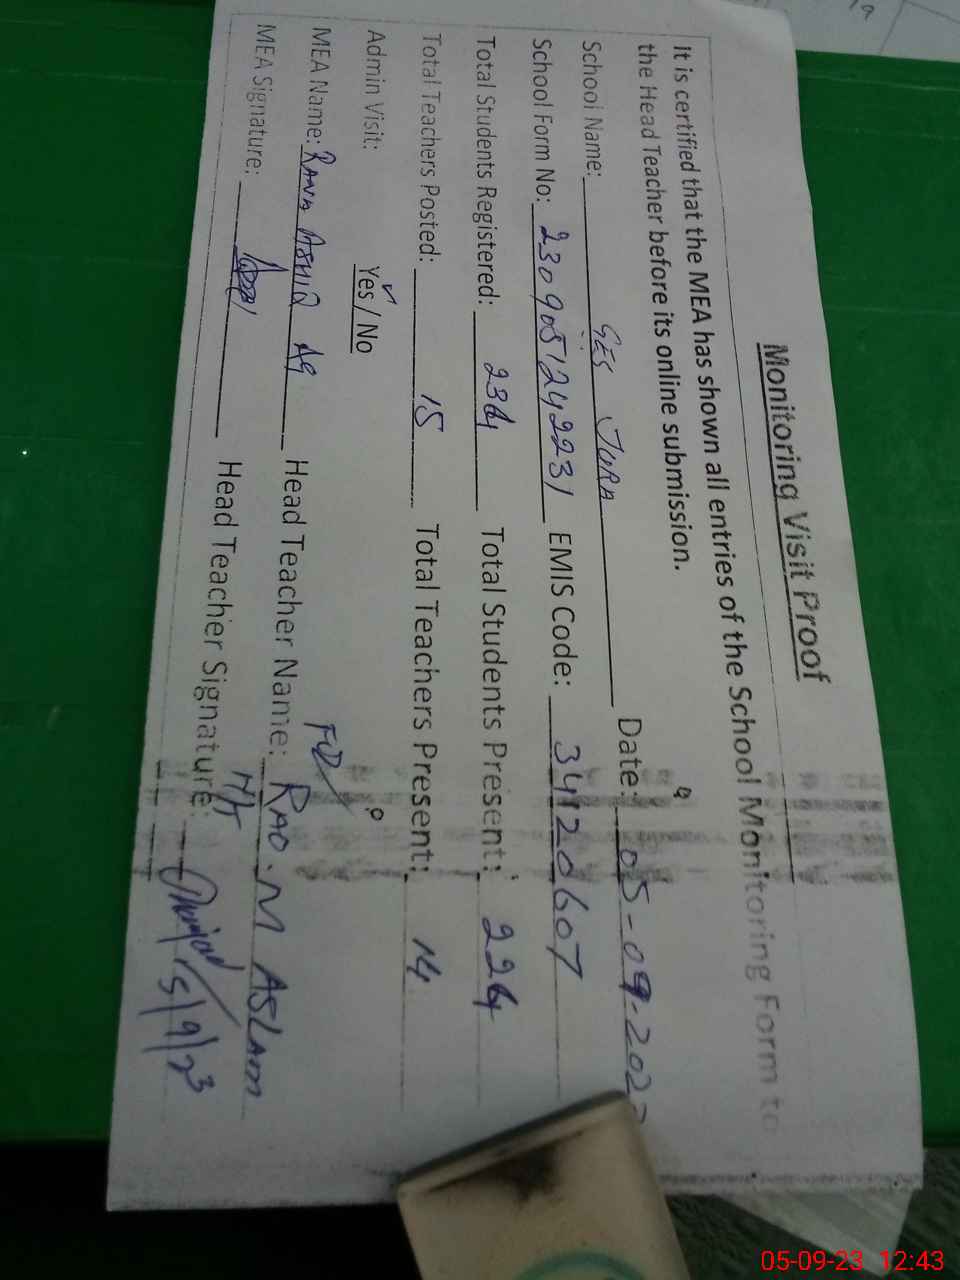 Monitoring Visit Proof
It is certified that the MEA has shown all entries of the School Monitoring Form to
the Head Teacher before its online submission.
School Name: GES JURA Date: 05-09-202
School Form No: 2309051242231 EMIS Code: 34120607
Total Students Registered: 234 Total Students Present: 224
Total Teachers Posted: 15 Total Teachers Present: 14
Admin Visit: Yes / No
MEA Name: RANA ASHIQ Head Teacher Name: RAO. M ASLAM
MEA Signature: Head Teacher Signature:
5/9/23
05-09-23 12:43